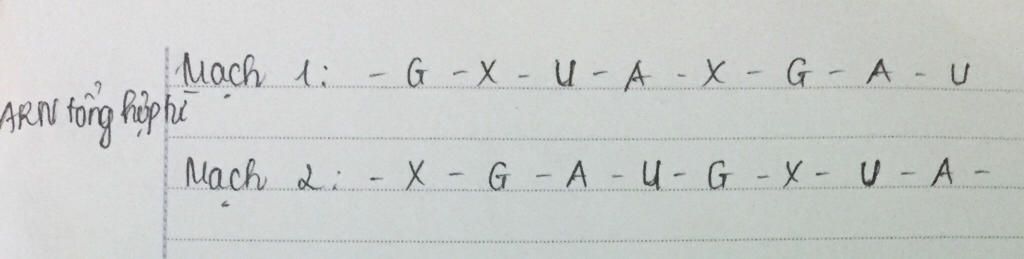 Mạch 1: - G - X - U - A - X - G - A - U
ARN tổng hợp từ
Mạch 2: - X - G - A - U - G - X - U - A -